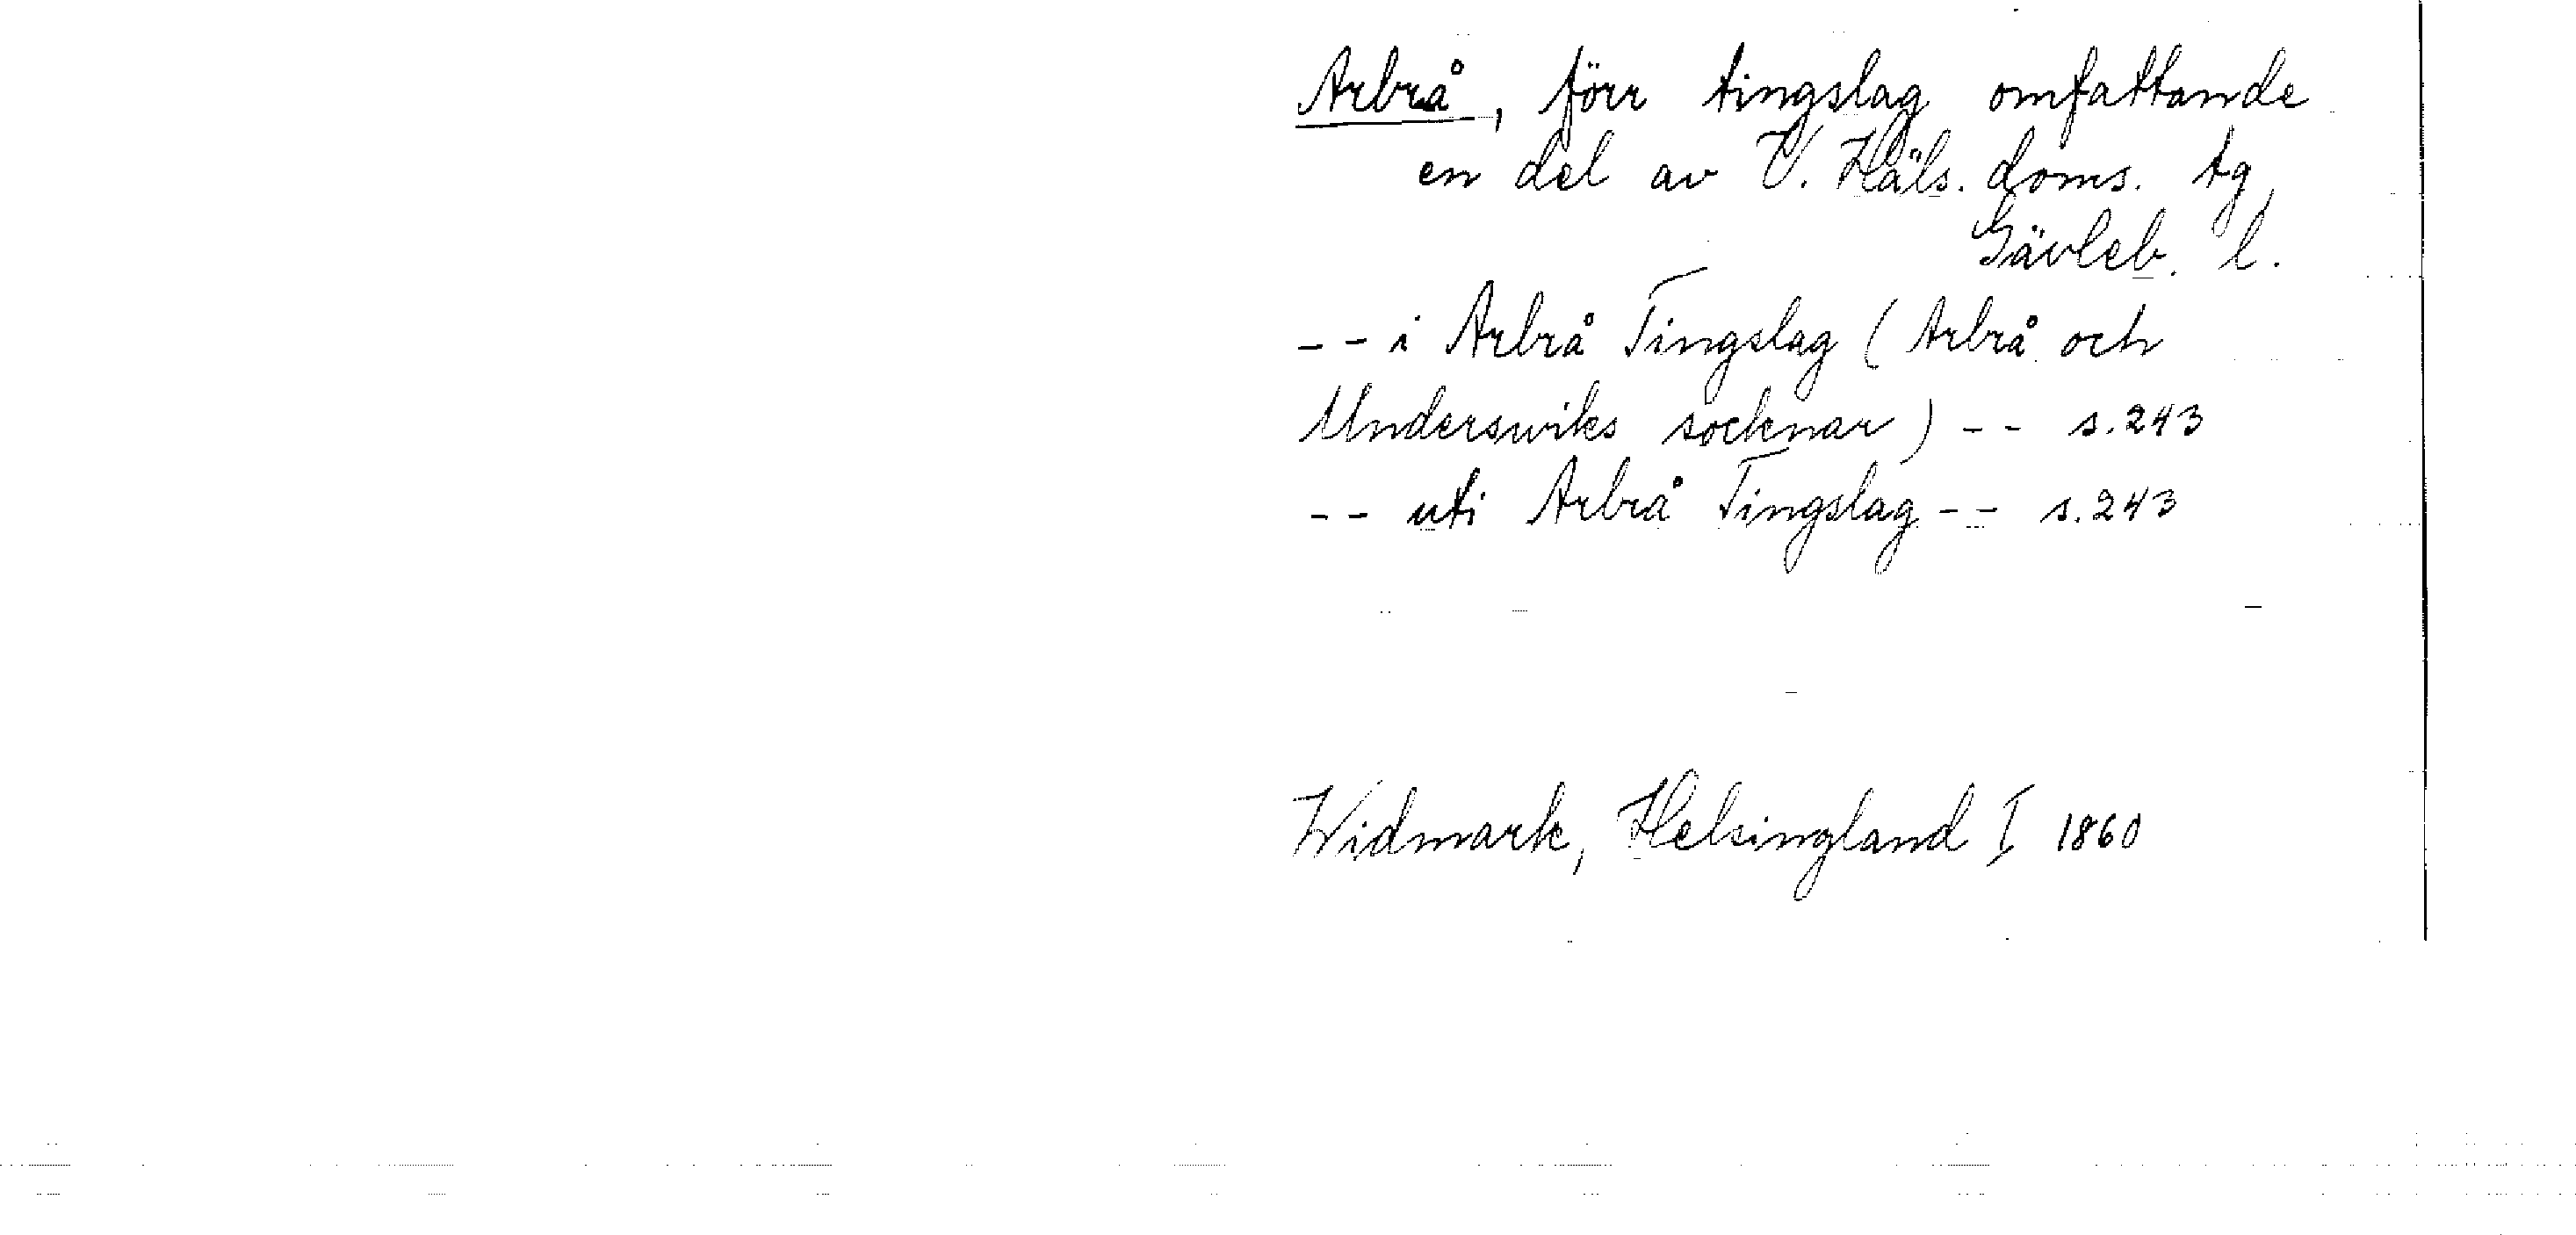 Arbrå, förr tingslag omfattande
en del av V. Häls. doms. tg,
Gävleb. l.
-- i Arbrå Tingslag (Arbrå och
Underswiks socknar) -- s. 243
-- uti Arbrå Tingslag -- s. 243
Widmark, Helsingland I 1860